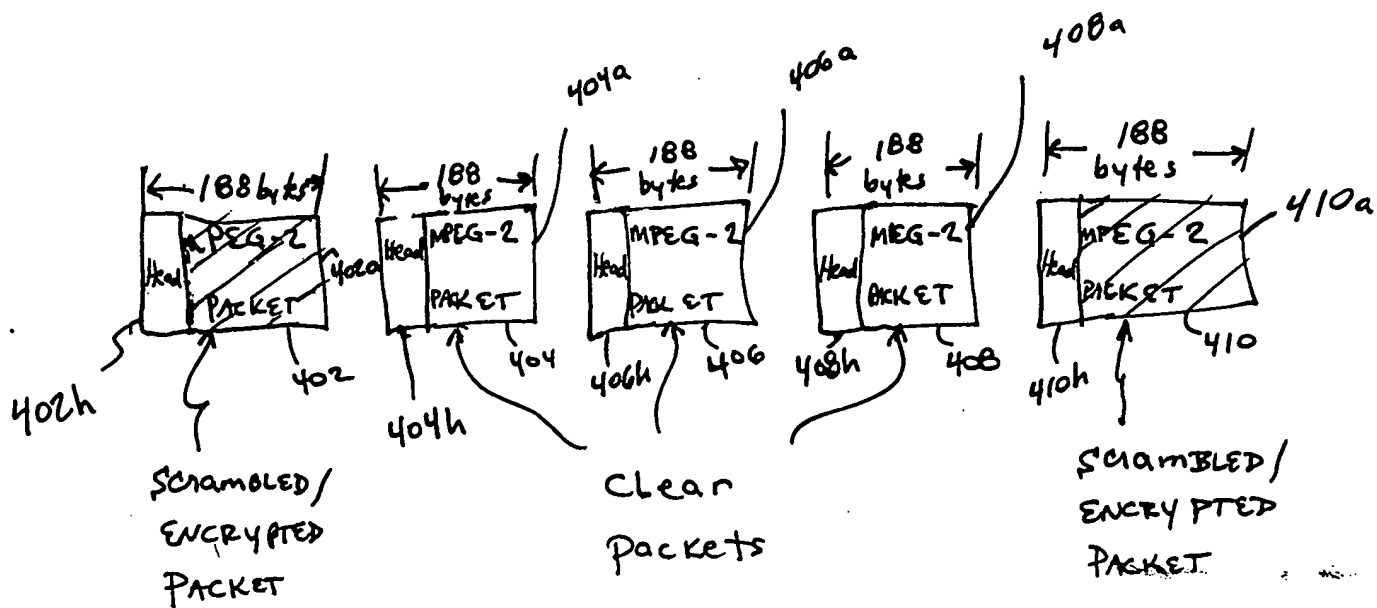 404a
406a
408a
188 bytes
188
bytes
188
bytes
188
bytes
188
bytes
Head
MPEG-2
PACKET
402a
Head
MPEG-2
PACKET
Head
MPEG-2
PACKET
Head
MPEG-2
PACKET
Head
MPEG-2
PACKET
410a
402h
402
404h
404
406h
406
408h
408
410h
410
SCRAMBLED/
ENCRYPTED
PACKET
Clear
Packets
SCRAMBLED/
ENCRYPTED
PACKET